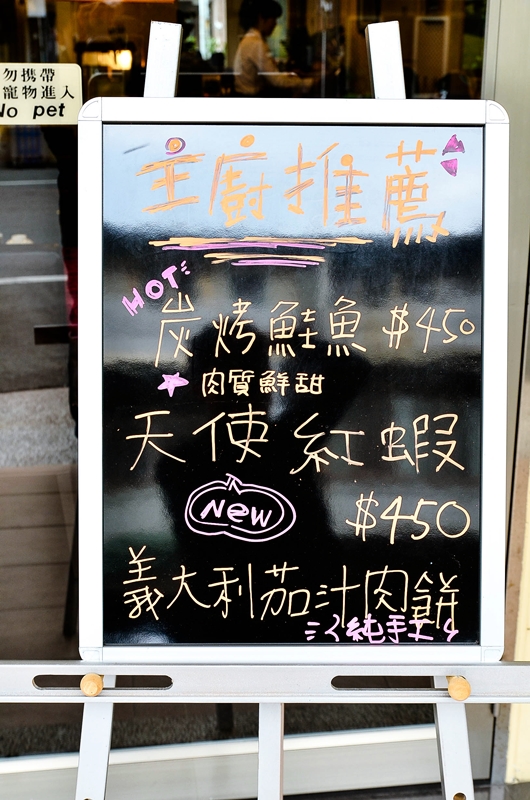 勿攜帶
寵物進入
No pet
主廚推薦
HOT
炭烤鮭魚 $450
肉質鮮甜
天使紅蝦
New $450
義大利茄汁肉餅
純手工